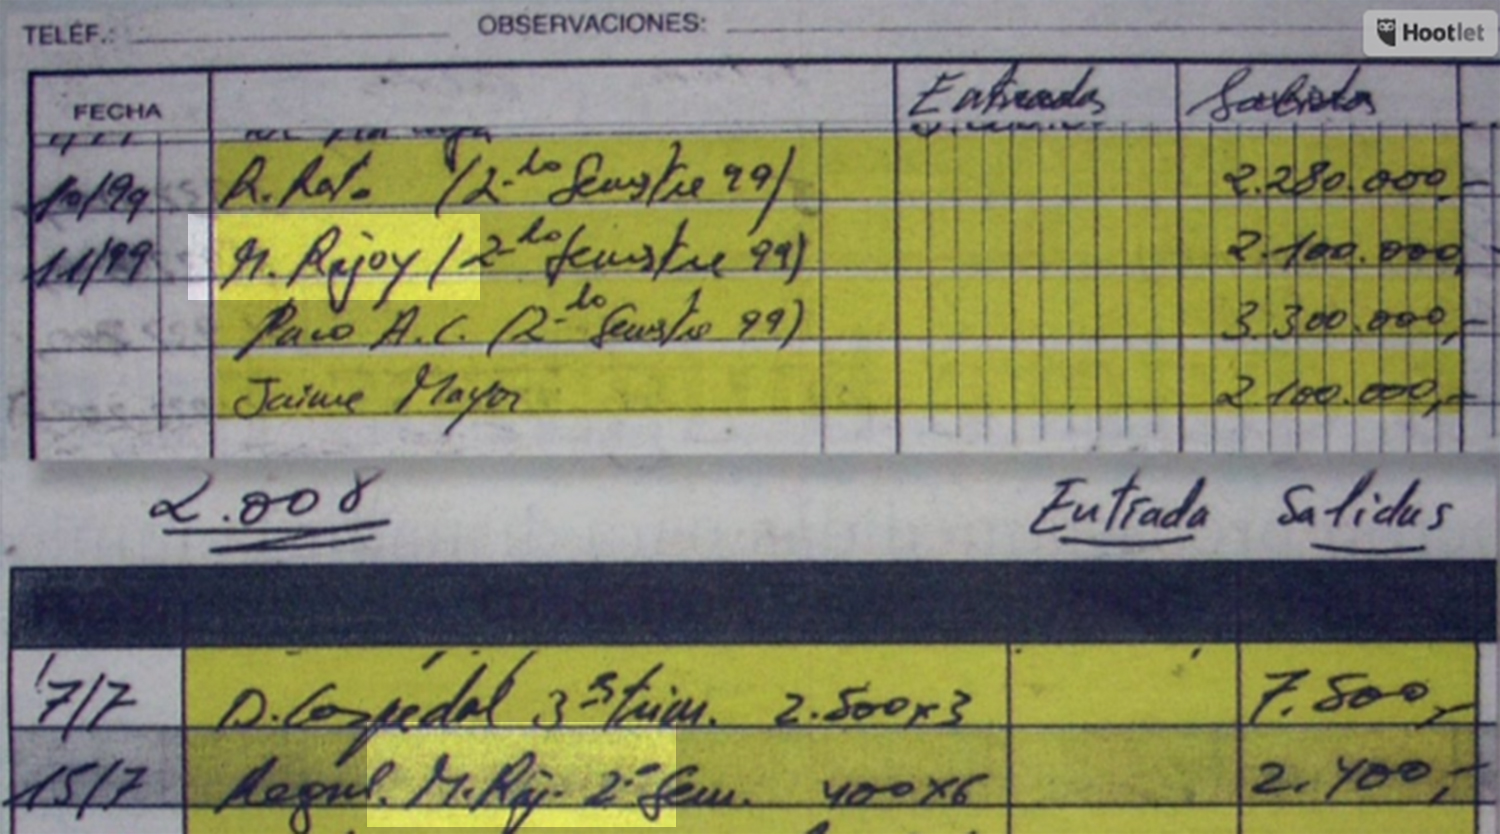 TELÉF.: OBSERVACIONES:
Hootlet
FECHA Entradas Salidas
10/99 R. Rato (2-do Semestre 99) 2.280.000,-
11/99 M. Rajoy (2-do Semestre 99) 2.100.000,-
Paco A.C. (2-do Semestre 99) 3.300.000,-
Jaime Mayor 2.100.000,-
2.008 Entrada Salidas
7/7 D. Cospedal 3er trim. 2.500x3 7.500,-
15/7 Regul. M. Raj. 2º Sem. 400x6 2.400,-